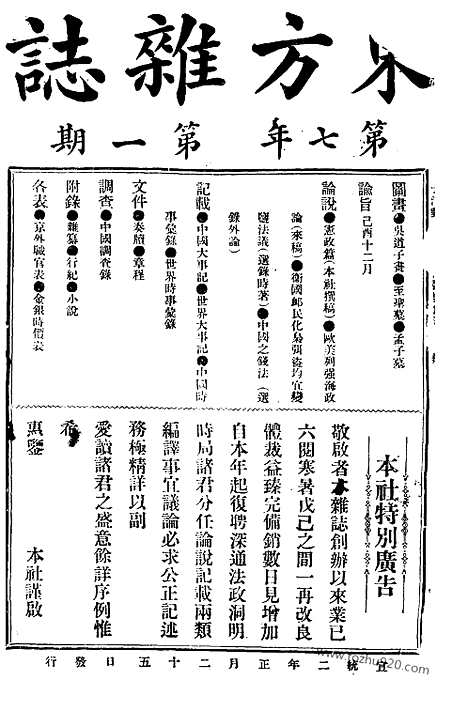 東方雜誌
第七年 第一期
圖畫●吳道子畫●至聖墓●孟子墓
諭旨 己酉十二月
論說●憲政篇(本社撰稿)●歐美列强海政
論(來稿)●衛國郵民化梟弭盜均宜變
鹽法議(選錄時著)●中國之錢法(選
錄外論)
記載●中國大事記●世界大事記●中國時
事彙錄●世界時事彙錄
文件●奏牘●章程
調查●中國調查錄
附錄●雜纂●行紀●小說
各表●京外職官表●金銀時價表
本社特別廣告
敬啟者本雜誌創辦以來業已
六閱寒暑戊己之間一再改良
體裁益臻完備銷數日見增加
自本年起復聘深通法政洞明
時局諸君分任論說記載兩類
編譯事宜議論必求公正記述
務極精詳以副
愛讀諸君之盛意餘詳序例惟
希
惠鑒 本社謹啟
宣統二年正月二十五日發行
www.fozhu920.com